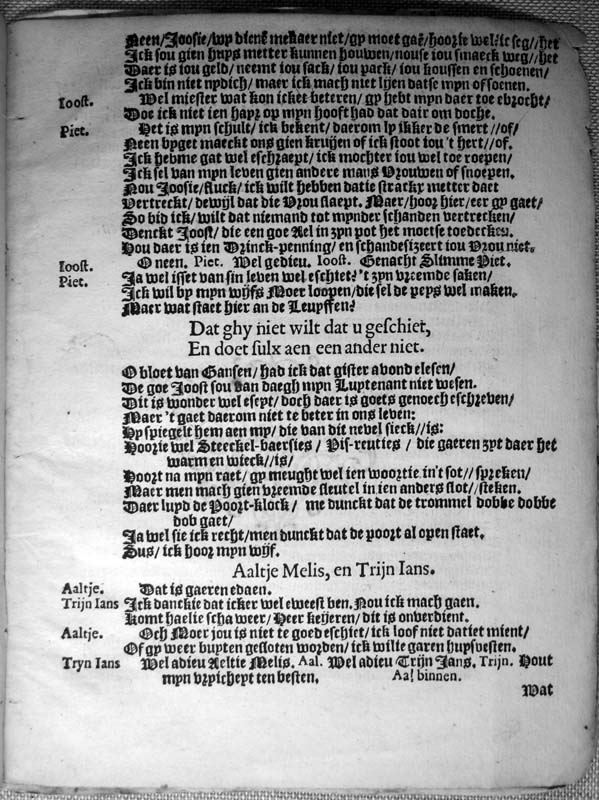 Neen/Joosie/wy dienẽ mekaer niet/gy moet gaẽ/hoorie wel? ic seg//het
Ick sou gien huys metter kunnen houwen/nouse iou smaeck weg//het
Daer is iou geld/ neemt iou sack/ iou pack/ iou koussen en schoenen/
Ick bin niet nydich/ maer ick mach niet lijen datse myn of soenen.
Ioost. Wel miester wat kon icket beteren/ gy hebt myn daer toe ebrocht/
Doe ick niet ien hayr op myn hooft had dat dair om doche.
Piet. Het is myn schult/ ick bekent/ daerom ly ikker de smert//of/
Neen vyget maeckt ons gien kruijen of ick stoot iou 't hert//of.
Ick hebme gat wel eschraept/ ick mochter iou wel toe roepen/
Ick sel van myn leven gien andere mans Vrouwen of snoepen.
Nou Joosie/fluck/ ick wilt hebben datie stracky metter daet
Vertreckt/ dewijl dat die Vrou slaept. Maer/hoor hier/eer gy gaet/
So bid ick/ wilt dat niemand tot mynder schanden vertrecken/
Denckt Joost/ die een goe Ael in zyn pot het moetse toedecken.
Hou daer is ien Drinck-penning/ en schandesizeert iou Vrou niet.
Ioost. O neen. Piet. Wel gedieu. Ioost. Genacht Slimme Piet.
Piet. Ja wel isset van sin leven wel eschiet? 't zyn vreemde saken/
Ick wil by myn wijfs Moer loopen/die sel de peys wel maken.
Maer wat staet hier an de Leuyffen?
Dat ghy niet wilt dat u geschiet,
En doet sulx aen een ander niet.
O bloet van Gansen/ had ick dat gister avond elesen/
De goe Joost sou van daegh myn Luytenant niet wesen.
Dit is wonder wel eseyt/ doch daer is goets genoech eschreven/
Maer 't gaet daerom niet te beter in ons leven:
Hy spiegelt hem aen my/ die van dit nevel sieck//is:
Hoorie wel Steeckel-baersies / Vis-reuties / die gaeren zyt daer het
warm en wieck//is/
Hoort na myn raet/ gy meught wel ien woortie in't sot//spreken/
Maer men mach gien vreemde sleutel in ien anders slot//steken.
Daer luyd de Poort-klock/ me dunckt dat de trommel dobbe dobbe
dob gaet/
Ja wel sie ick recht/men dunckt dat de poort al open staet.
Sus/ ick hoor myn wijf.
Aaltje Melis, en Trijn Ians.
Aaltje. Dat is gaeren edaen.
Trijn Ians Ick danckie dat icker wel eweest ben. Nou ick mach gaen.
Komt haelie scha weer/ Heer keijeren/ dit is onverdient.
Aaltje. Och Moer jou is niet te goed eschiet/ ick loof niet datiet mient/
Of gy weer buyten gesloten worden/ ick wilie garen huysvesten.
Tryn Ians Wel adieu Aeltie Melis. Aal. Wel adieu Trijn Jans. Trijn. Hout
myn vrpicheyt ten besten. Aal binnen.
Wat